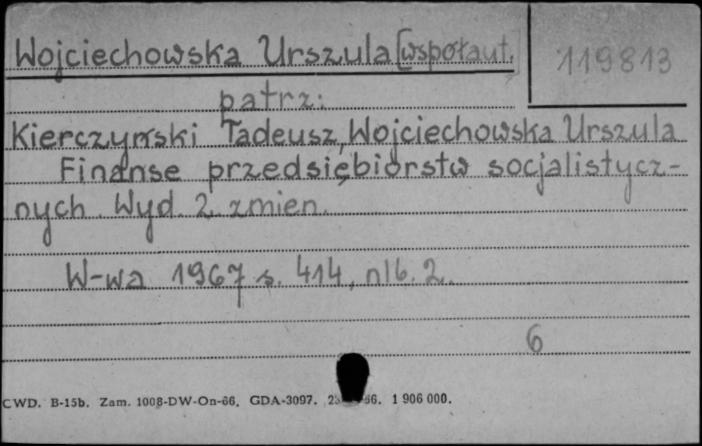 Wojciechowska Urszula [współaut.
119813
patrz:
Kierczyński Tadeusz, Wojciechowska Urszula
Finanse przedsiębiorstw socjalistycz-
nych. Wyd. 2 zmien.
W-wa 1967 s. 414, nlb. 2.
6
CWD. B-15b. Zam. 1008-DW-On-66. GDA-3097. 66. 1 906 000.